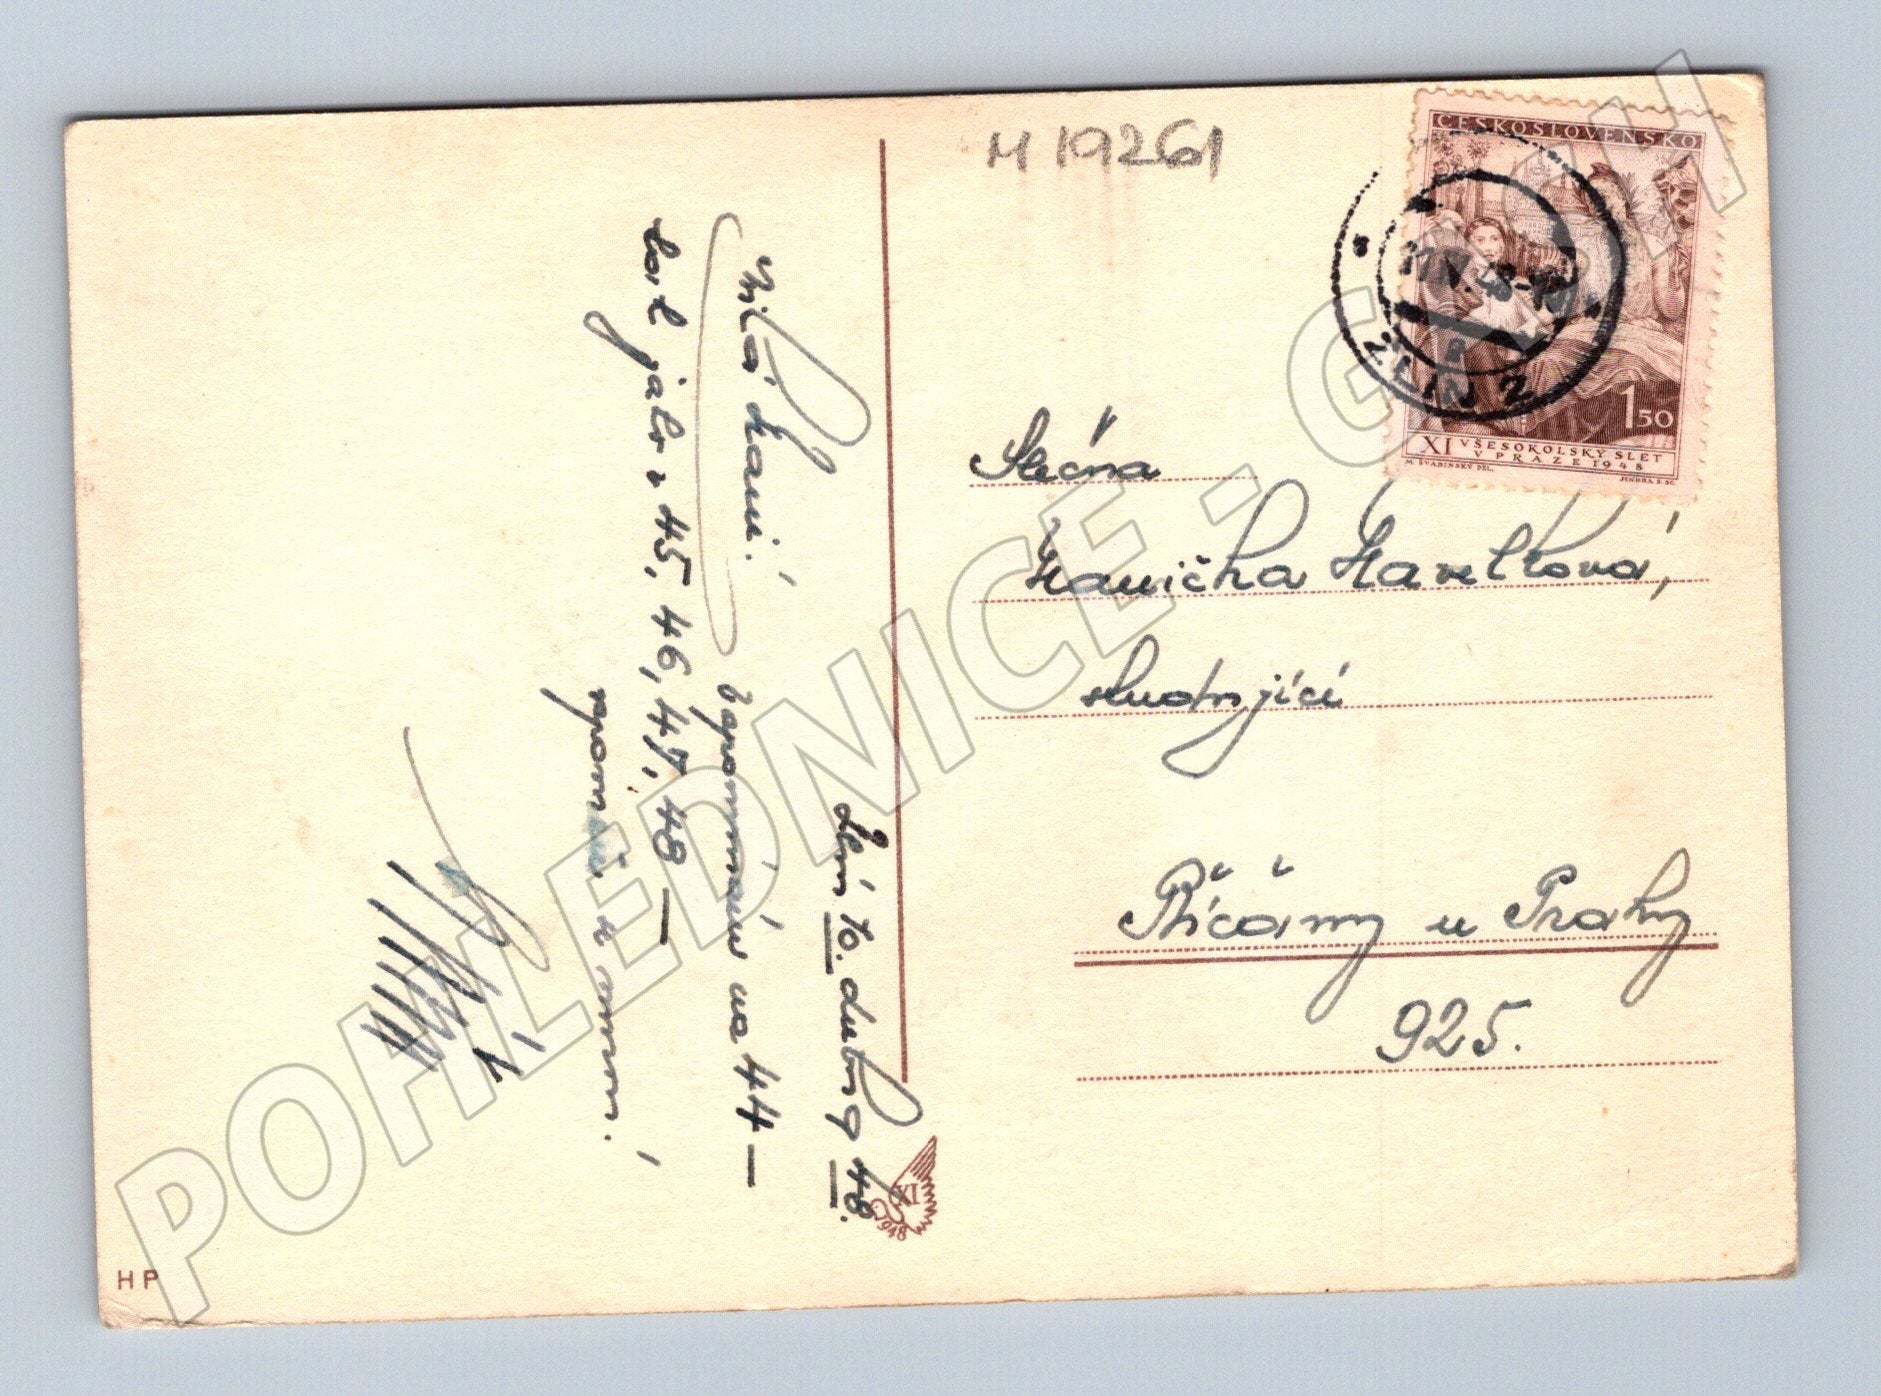 M 19261
ČESKOSLOVENSKO
11.IV.48-18
ZLÍN 2
1 50
XI VŠESOKOLSKÝ SLET
V PRAZE 1948
M. ŠVABINSKÝ DEL.
JINDRA S. SC.
Slečna
Hanička Havelková,
studující
Říčany u Prahy
925.
Zlín 10. dubna 48.
Milá Hani!
Vzpomínám na 44 —
tak jako v 45, 46, 47, 48 —
vzpomeň
XI
1948
HP
POHLEDNICE - G